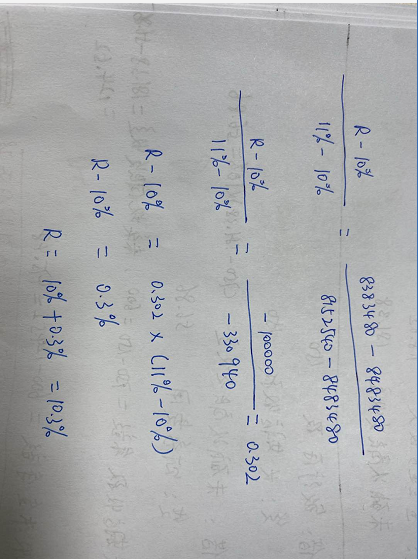 R - 10% / 11% - 10% = 8383480 - 8483480 / 8152540 - 8483480
R - 10% / 11% - 10% = -100000 / -330940 = 0.302
R - 10% = 0.302 × (11% - 10%)
R - 10% = 0.3%
R = 10% + 0.3% = 10.3%